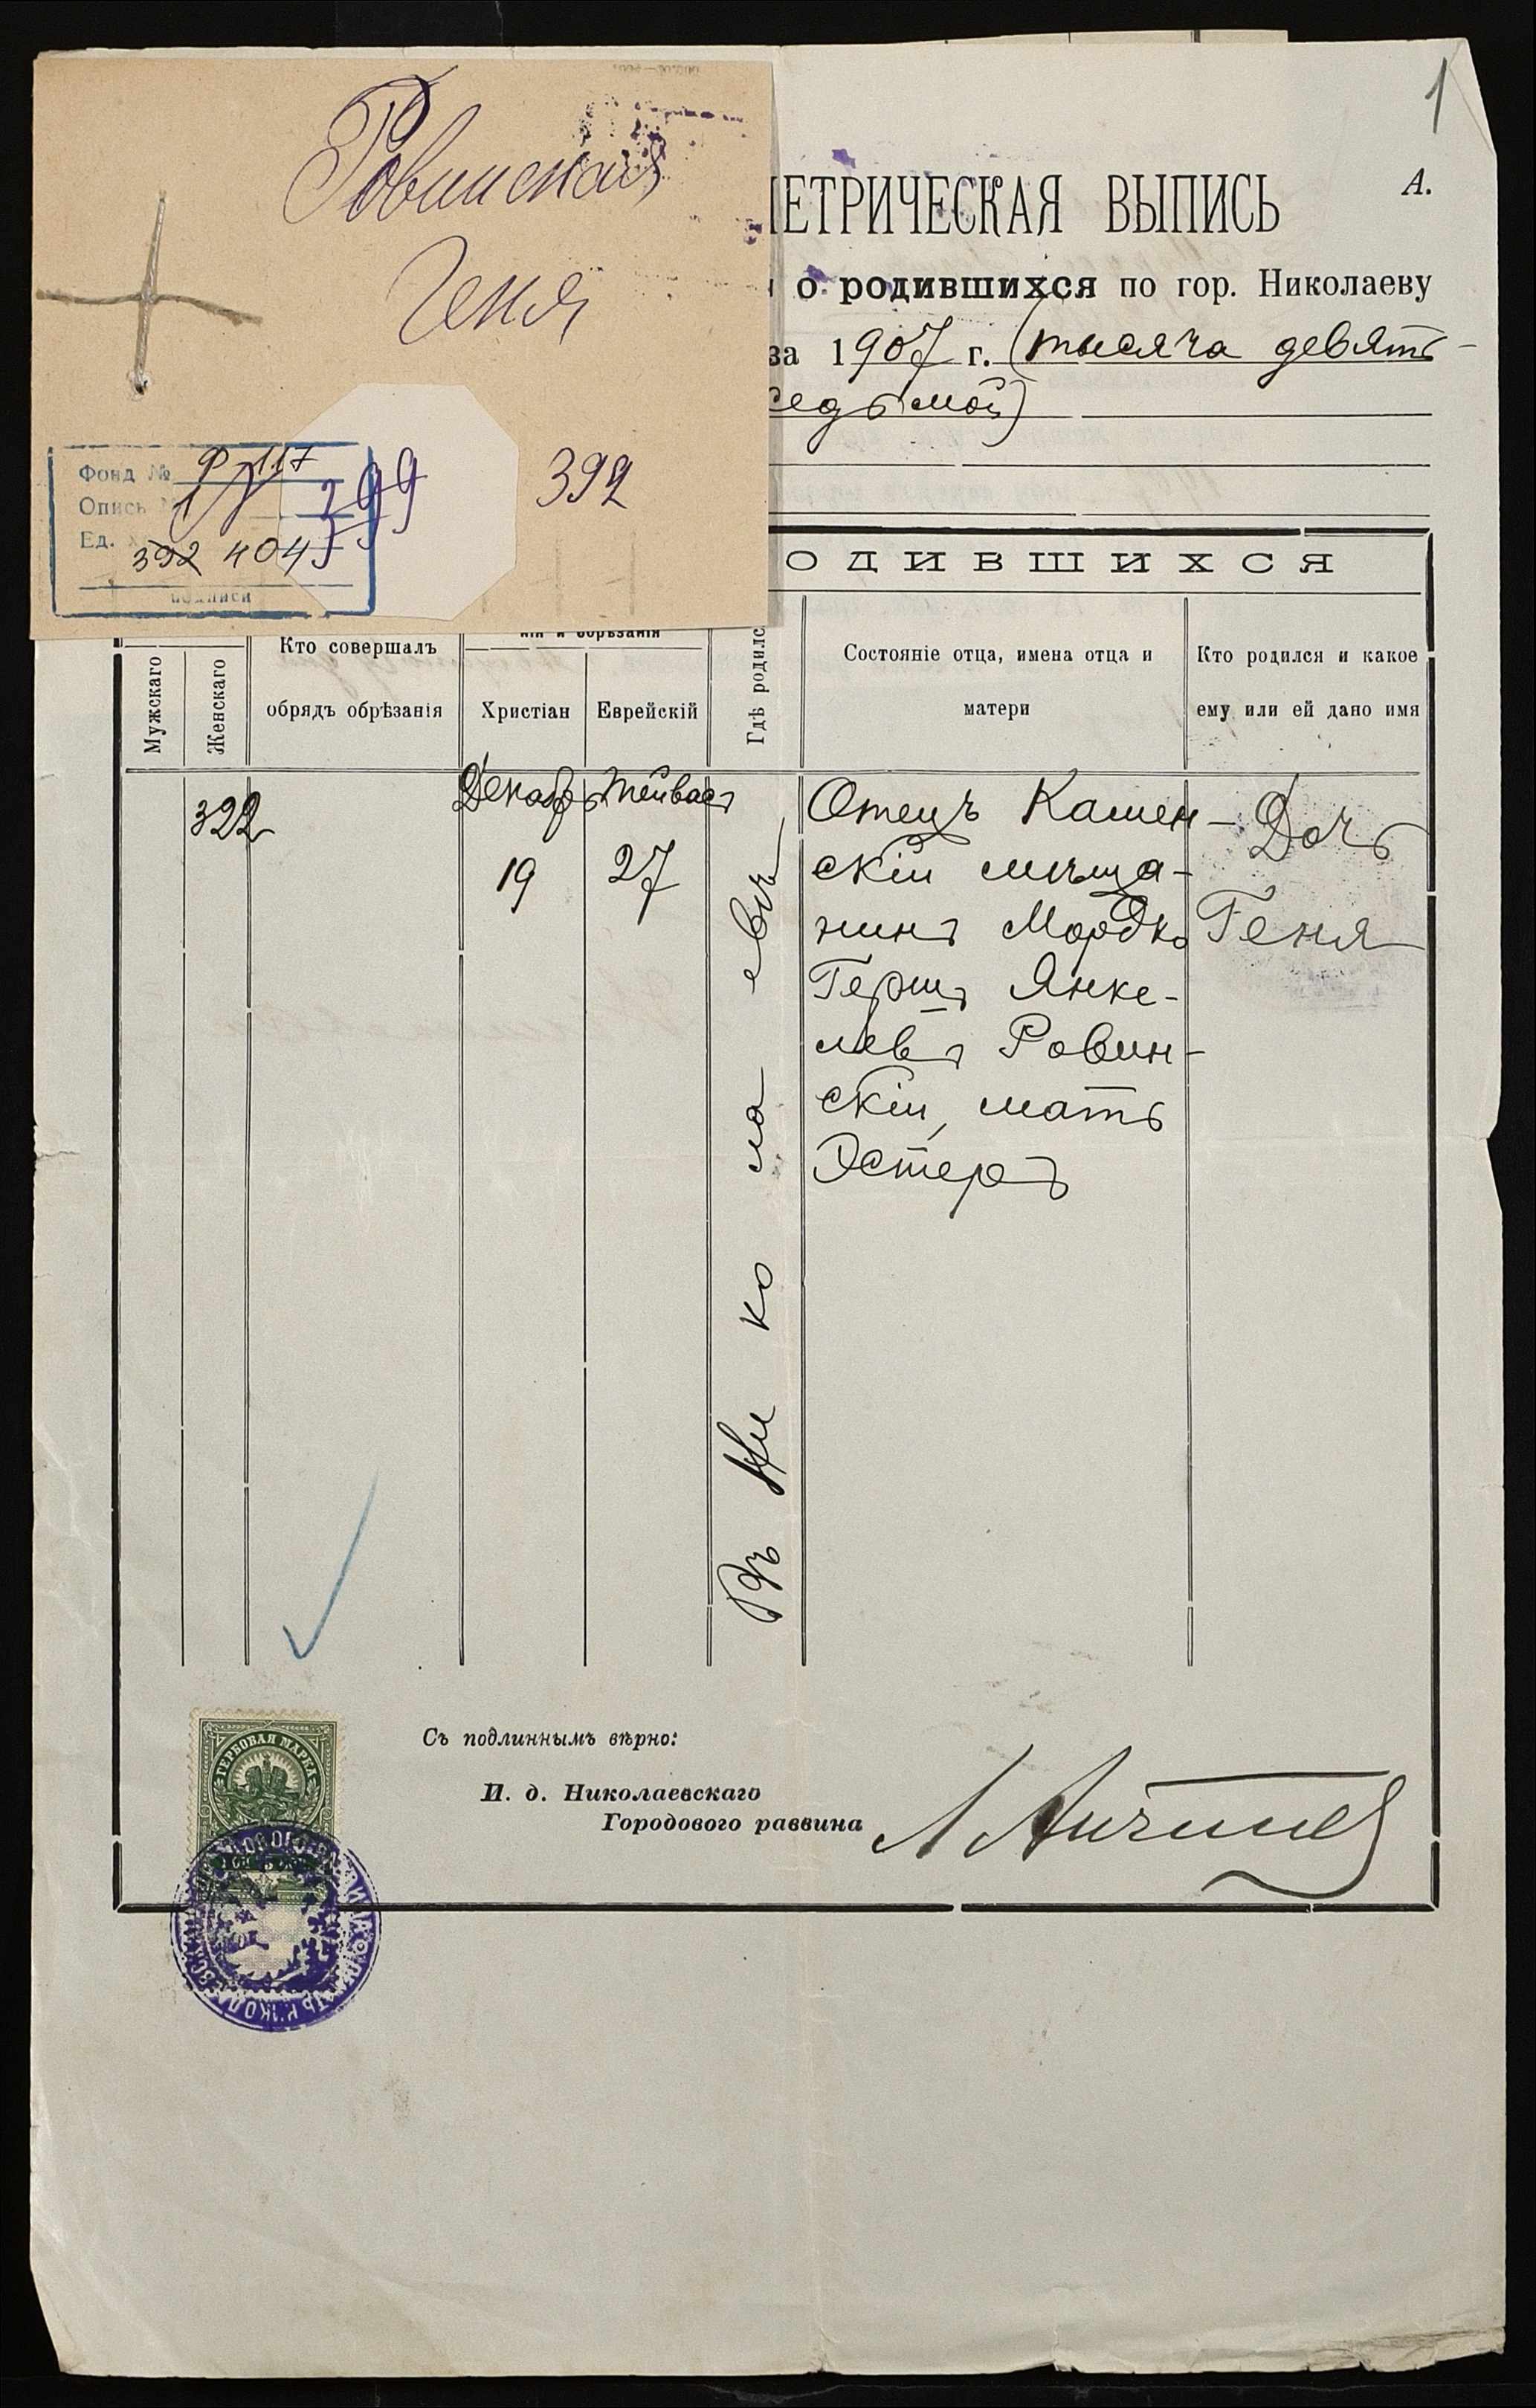 1
Ровинская
Геня
392
Фонд № Р 117
Опись
Ед.
392 4045
299
подписи
МЕТРИЧЕСКАЯ ВЫПИСЬ
А.
о родившихся по гор. Николаеву
за 1907 г. (тысяча девять-
седьмой)
ОДИВШИХСЯ
Мужскаго
Женскаго
Кто совершалъ
обрядъ обрѣзанія
нія и обрѣзанія
Христіан
Еврейскій
Гдѣ родилс
Состояніе отца, имена отца и
матери
Кто родился и какое
ему или ей дано имя
322
Декабрь
19
Тейвас
27
Въ Николаевѣ
Отецъ Камен-
скій мѣща-
нинъ Мордко
Гершъ Янке-
левъ Ровин-
скій, мать
Эстеръ
Дочь
Геня
ГЕРБОВАЯ МАРКА
Съ подлиннымъ вѣрно:
И. д. Николаевскаго
Городового раввина